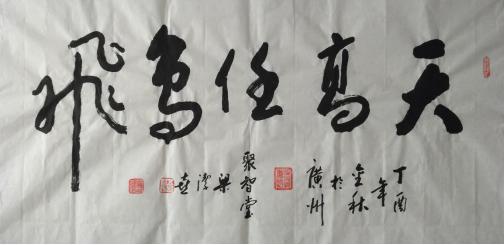 天高任鸟飛
丁酉
年
金秋
於
廣州
聚智堂
梁